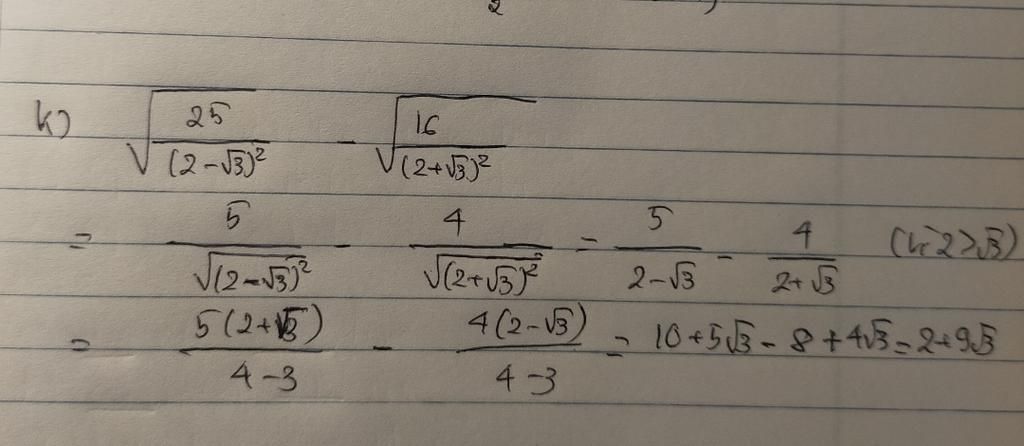 2
k) √(25/(2-√3)²) - √(16/(2+√3)²)
= 5/√(2-√3)² - 4/√(2+√3)² = 5/(2-√3) - 4/(2+√3) (Vì 2>√3)
= 5(2+√3)/(4-3) - 4(2-√3)/(4-3) = 10+5√3-8+4√3=2+9√3